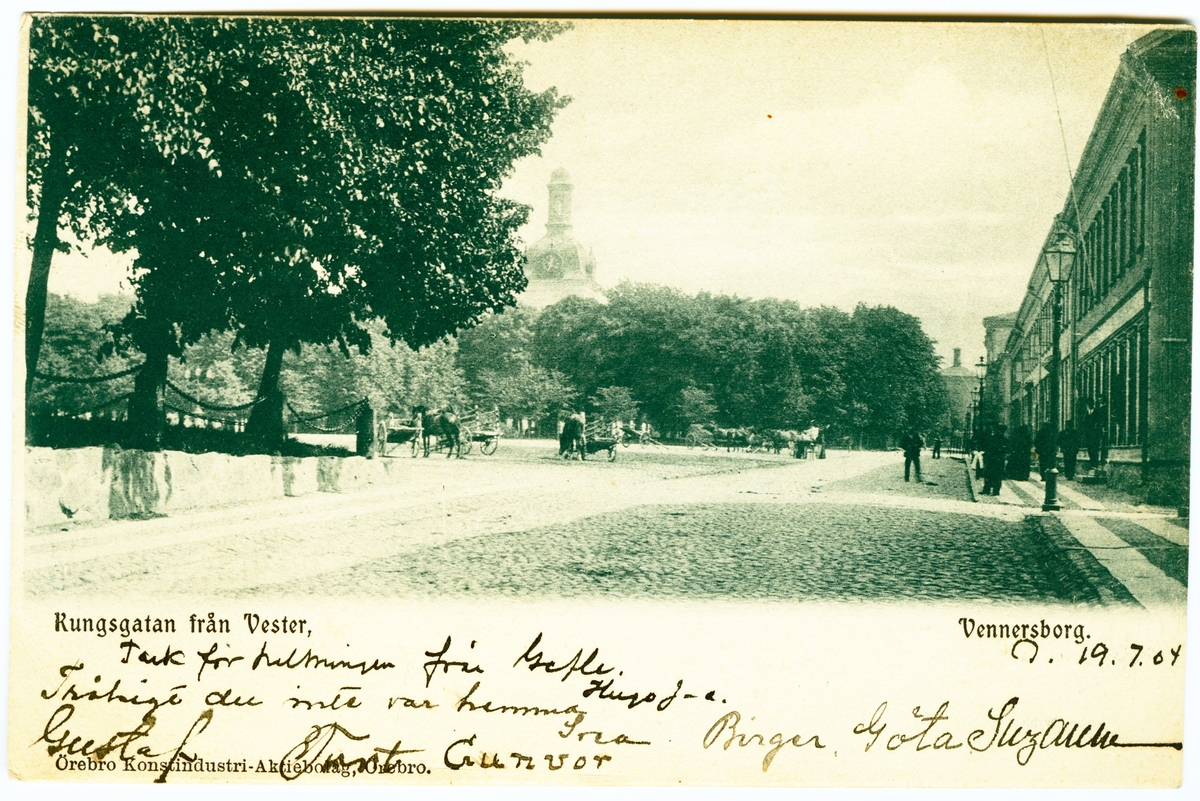 Kungsgatan från Vester, Vennersborg.
Tack för helsningen från Gefle. D. 19.7.04
Hugo J-a.
Tråkigt du inte var hemma
Gustaf Tant Gunvor Svea Birger Göta Suzanne
Örebro Konstindustri-Aktiebolag, Örebro.